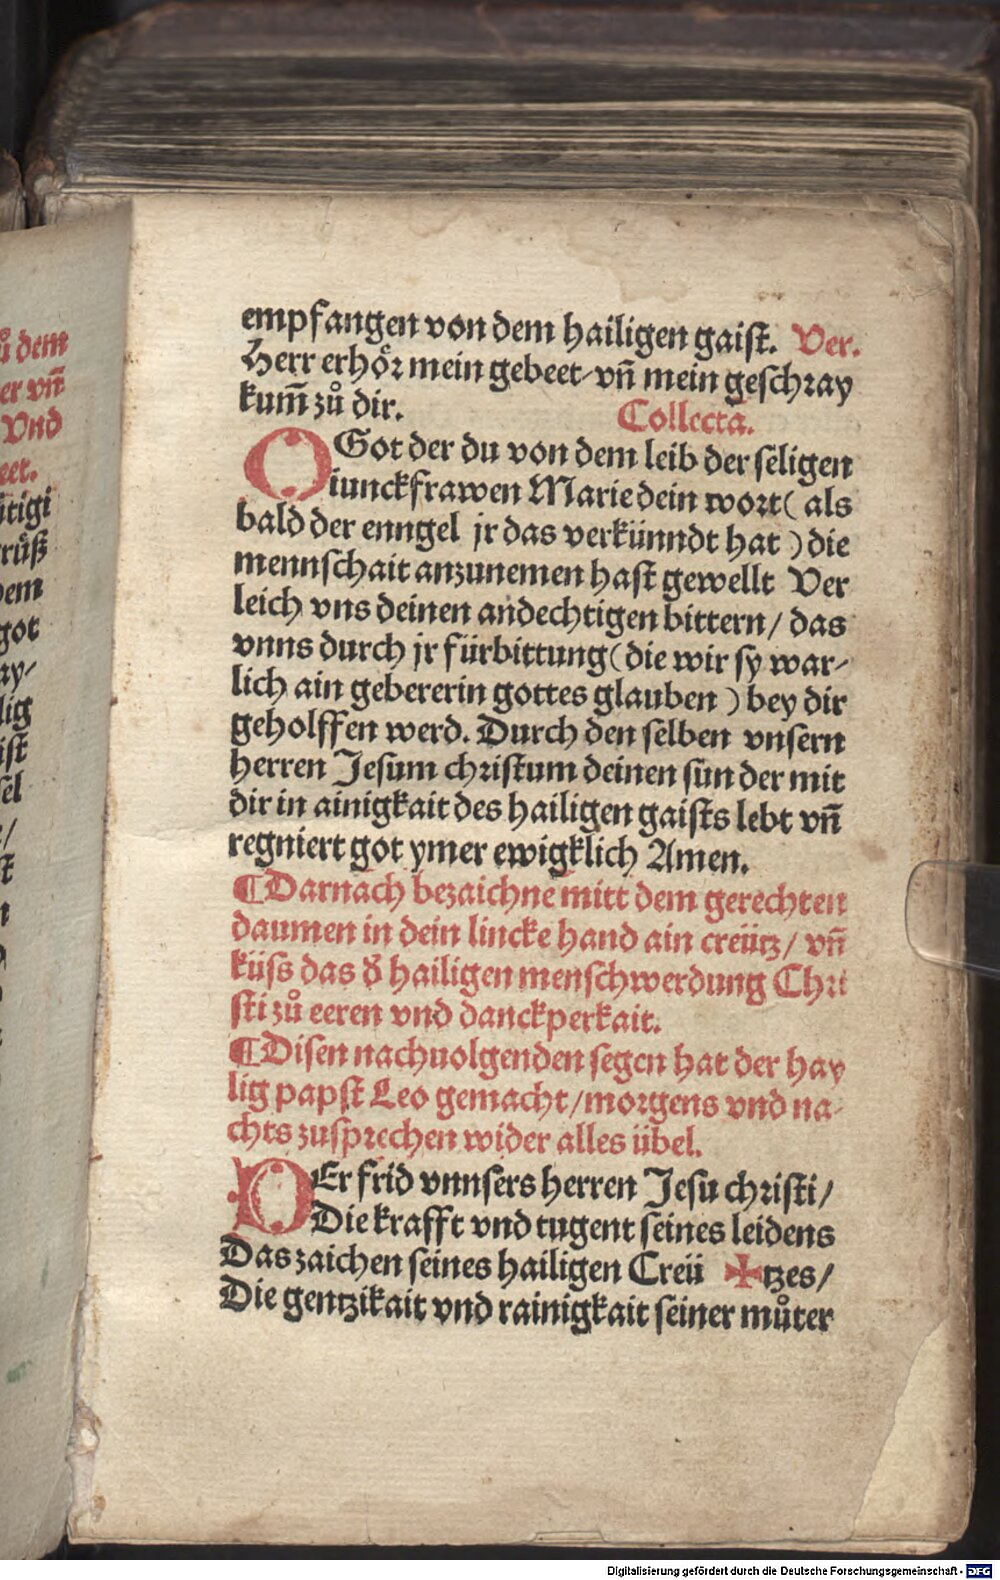 ů dem
er vñ
Vnd
eet.
ütigi
rüß
dem
got
ay⸗
lig
ist
sel
empfangen von dem hailigen gaist. Ver.
Herr erhör mein gebeet⸗vñ mein geschray
kum̄ zů dir. Collecta.
O Got der du von dem leib der seligen
iunckfrawen Marie dein wort( als
bald der enngel jr das verkünndt hat ) die
mennschait anzunemen hast gewellt Ver
leich vns deinen andechtigen bittern/ das
vnns durch jr fürbittung( die wir sy war⸗
lich ain gebererin gottes glauben ) bey dir
geholffen werd. Durch den selben vnsern
herren Jesum christum deinen sun der mit
dir in ainigkait des hailigen gaists lebt vñ
regniert got ymer ewigklich Amen.
¶Darnach bezaichne mitt dem gerechten
daumen in dein lincke hand ain creütz/ vñ
küss das d̕ hailigen menschwerdung Chri
sti zů eeren vnd danckperkait.
¶Disen nachuolgenden segen hat der hay
lig papst Leo gemacht/morgens vnd na⸗
chts zusprechen wider alles übel.
DEr frid vnnsers herren Jesu christi/
Die krafft vnd tugent seines leidens
Das zaichen seines hailigen Creü ✠tzes/
Die gentzikait vnd rainigkait seiner můter
Digitalisierung gefördert durch die Deutsche Forschungsgemeinschaft - DFG